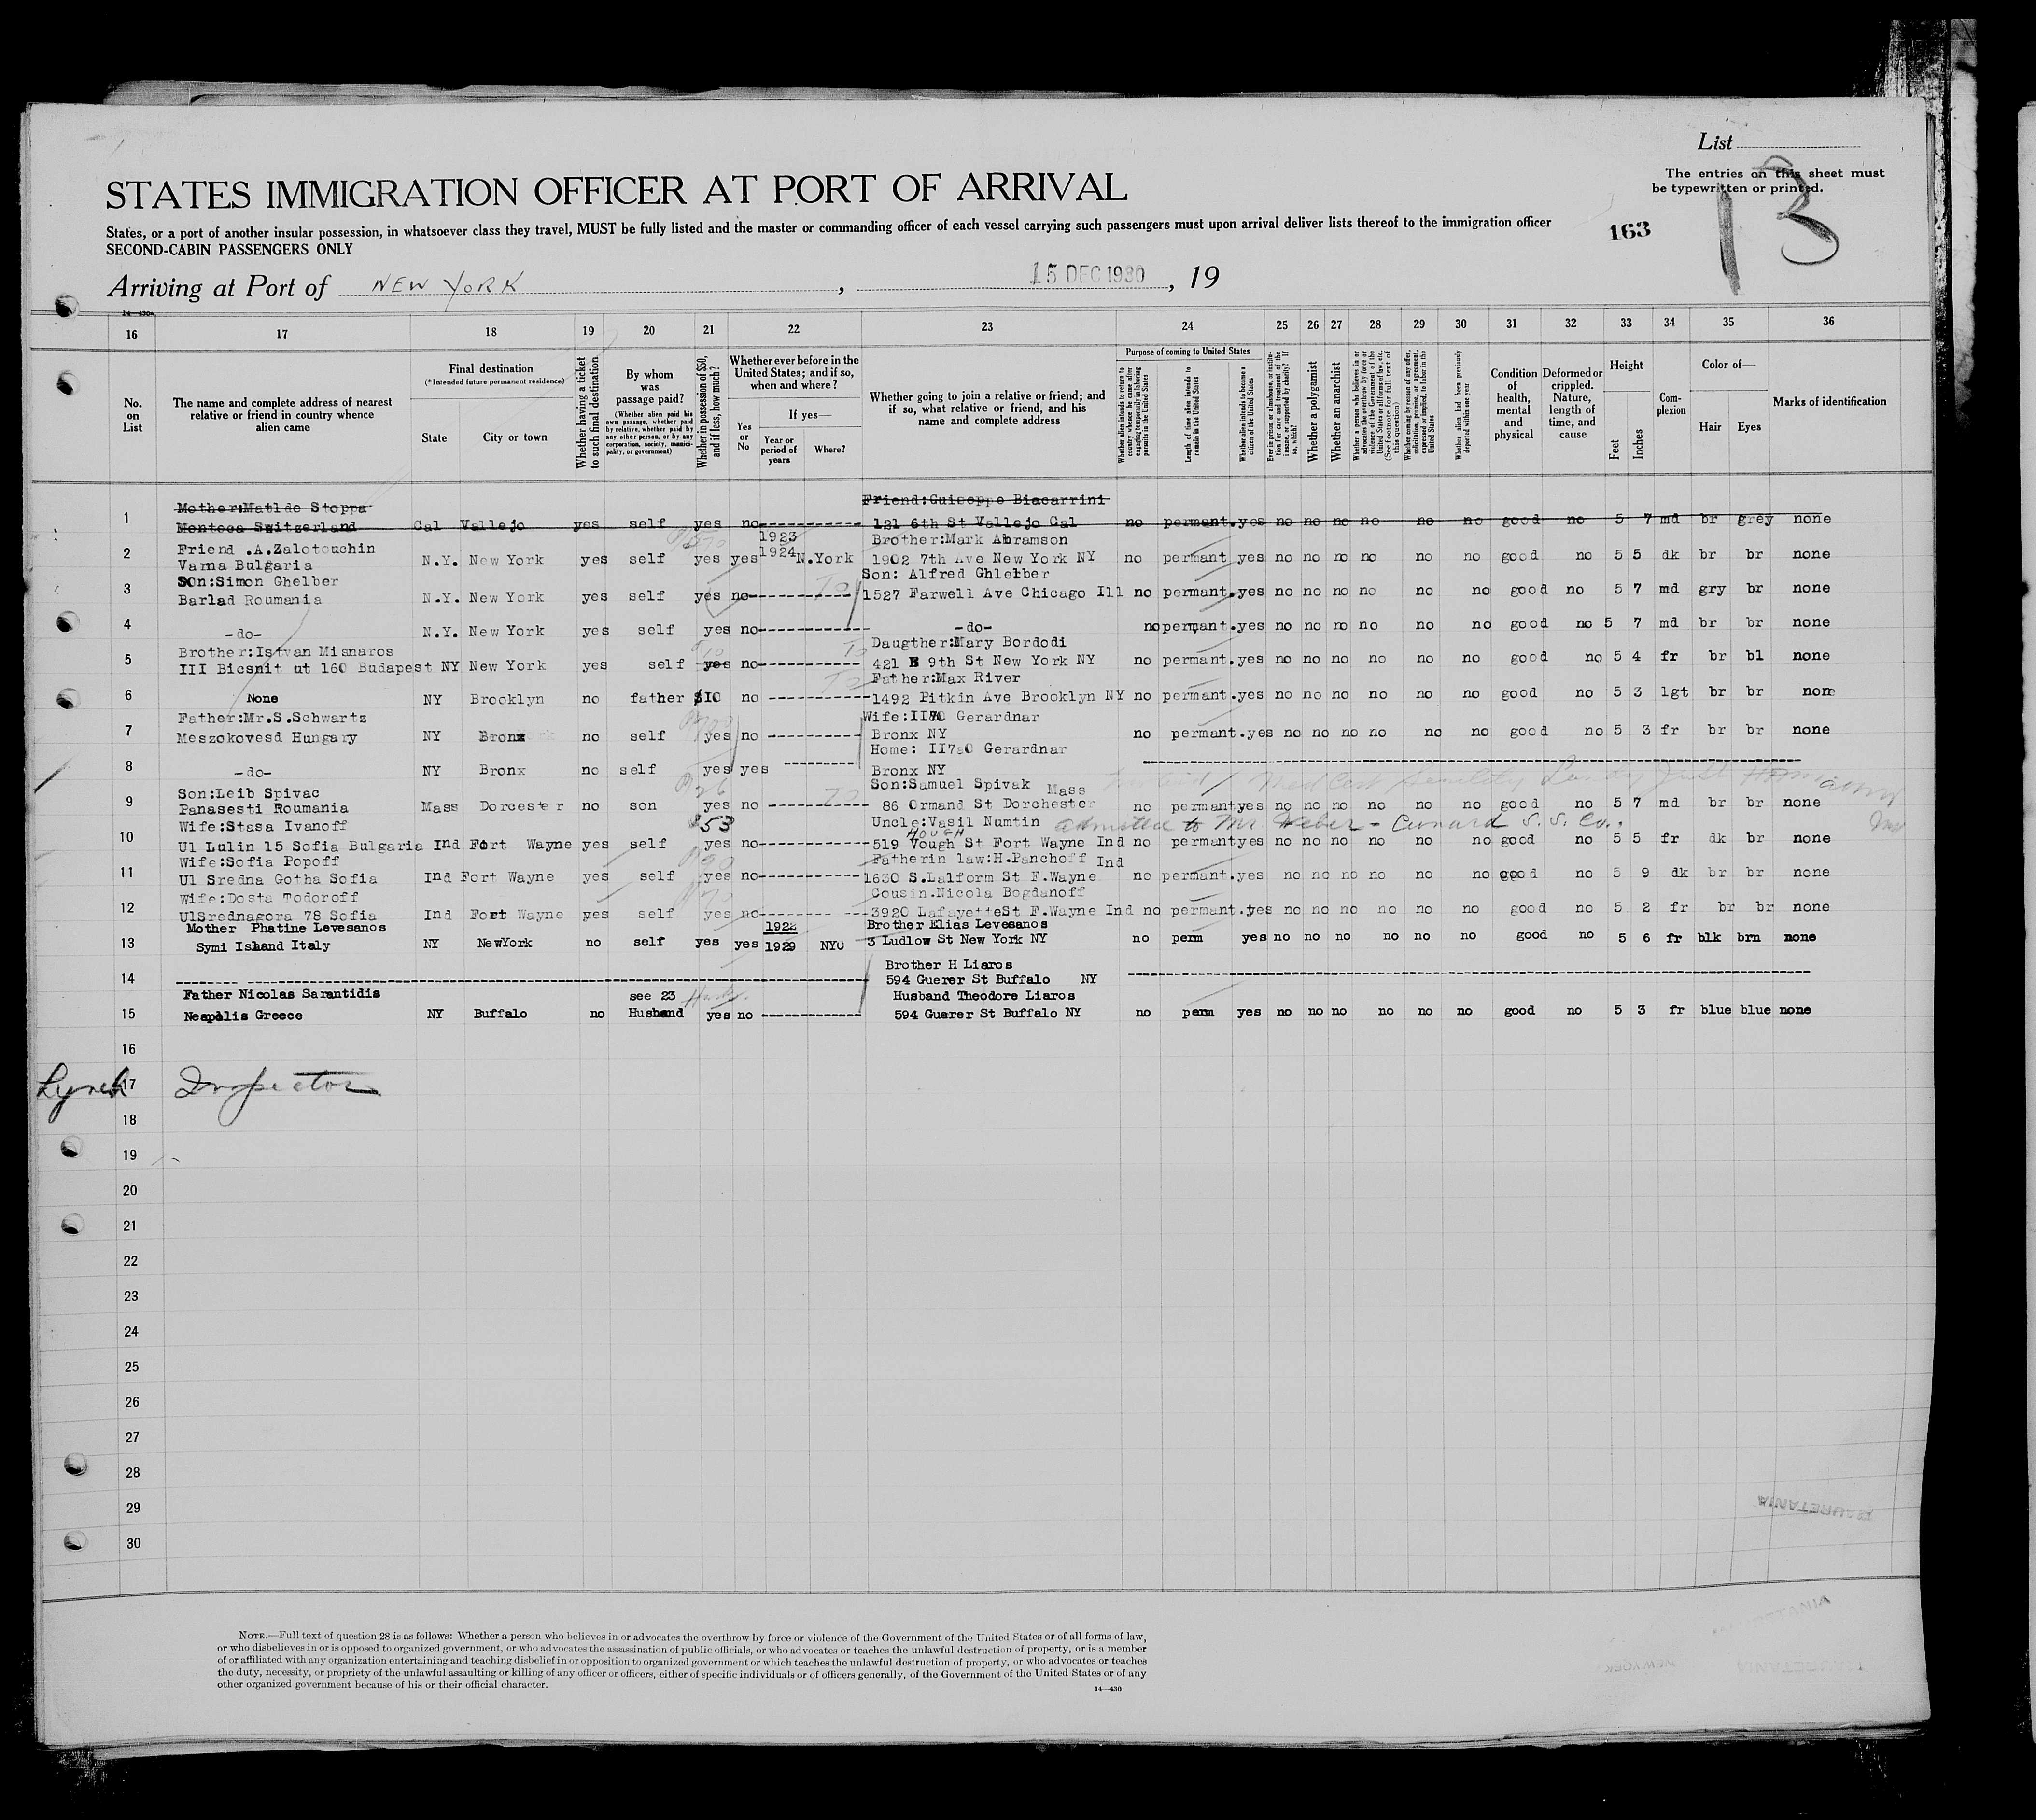 List
The entries on this sheet must
be typewritten or printed.
13
163
STATES IMMIGRATION OFFICER AT PORT OF ARRIVAL
States, or a port of another insular possession, in whatsoever class they travel, MUST be fully listed and the master or commanding officer of each vessel carrying such passengers must upon arrival deliver lists thereof to the immigration officer
SECOND-CABIN PASSENGERS ONLY
Arriving at Port of NEW YORK, 15 DEC 1930, 19
14—430a
16 17 18 19 20 21 22 23 24 25 26 27 28 29 30 31 32 33 34 35 36
No. on List
The name and complete address of nearest relative or friend in country whence alien came
Final destination
(*Intended future permanent residence)
State
City or town
Whether having a ticket to such final destination
By whom was passage paid?
(Whether alien paid his own passage, whether paid by relative, whether paid by any other person, or by any corporation, society, municipality, or government)
Whether in possession of $50, and if less, how much?
Whether ever before in the United States; and if so, when and where?
Yes or No
If yes—
Year or period of years
Where?
Whether going to join a relative or friend; and if so, what relative or friend, and his name and complete address
Purpose of coming to United States
Whether alien intends to return to country whence he came after engaging temporarily in laboring pursuits in the United States
Length of time alien intends to remain in the United States
Whether alien intends to become a citizen of the United States
Ever in prison or almshouse, or institution for care and treatment of the insane, or supported by charity? If so, which?
Whether a polygamist
Whether an anarchist
Whether a person who believes in or advocates the overthrow by force or violence of the Government of the United States or all forms of law, etc. (See footnote for full text of this question)
Whether coming by reason of any offer, solicitation, promise, or agreement, expressed or implied, to labor in the United States
Whether alien had been previously deported within one year
Condition of health, mental and physical
Deformed or crippled. Nature, length of time, and cause
Height
Feet
Inches
Complexion
Color of—
Hair
Eyes
Marks of identification
Mother:Matlde Stoppa Friend:Guiseppe Biacarrini
1 Monteca Switzerland Cal Vallejo yes self yes no 121 6th St Vallejo Cal no permant.yes no no no no no no good no 5 7 md br grey none
Friend .A.Zalotouchin 1923 Brother:Mark Abramson
2 Varna Bulgaria N.Y. New York yes self yes yes 1924 N.York 1902 7th Ave New York NY no permant yes no no no no no no good no 5 5 dk br br none
SOn:Simon Ghelber Son: Alfred Ghlelber
3 Barlad Roumania N.Y. New York yes self yes no 1527 Farwell Ave Chicago Ill no permant.yes no no no no no no good no 5 7 md gry br none
4 -do- N.Y. New York yes self yes no -do- no permant.yes no no no no no no good no 5 7 md br br none
Brother:Istvan Misnaros Daugther:Mary Bordodi
5 III Bicsnit ut 160 Budapest NY New York yes self yes no 421 E 9th St New York NY no permant.yes no no no no no no good no 5 4 fr br bl none
Father:Max River
6 None NY Brooklyn no father $10 no 1492 Pitkin Ave Brooklyn NY no permant.yes no no no no no no good no 5 3 lgt br br none
Father:Mr.S.Schwartz Wife: Gerardnar
7 Meszokovesd Hungary NY Bronx no self yes no Bronx NY no permant.yes no no no no no no good no 5 3 fr br br none
Home: Gerardnar
8 -do- NY Bronx no self yes yes Bronx NY
Son:Leib Spivac Son:Samuel Spivak Mass
9 Panasesti Roumania Mass Dorcester no son yes no 86 Ormand St Dorchester no permantyes no no no no no no good no 5 7 md br br none
Wife:Stasa Ivanoff $53 Uncle:Vasil Numtin admitted to Mr. Weber - Cunard S.S. Co.
HOUGH
10 Ul Lulin 15 Sofia Bulgaria Ind Fort Wayne yes self yes no 519 Vough St Fort Wayne Ind no permantyes no no no no no no good no 5 5 fr dk br none
Wife:Sofia Popoff Fatherin law:H.Panchoff Ind
11 Ul Sredna Gotha Sofia Ind Fort Wayne yes self yes no 1630 S.Lalform St F.Wayne no permant.yes no no no no no no good no 5 9 dk br br none
Wife:Dosta Todoroff Cousin.Nicola Bogdanoff
12 UlSrednagora 78 Sofia Ind Fort Wayne yes self yes no 3920 LafayetteSt F.Wayne Ind no permant.yes no no no no no no good no 5 2 fr br br none
Mother Phatine Levesanos 1922 Brother Elias Levesanos
13 Symi Island Italy NY NewYork no self yes yes 1929 NYC 3 Ludlow St New York NY no perm yes no no no no no no good no 5 6 fr blk brn none
Brother H Liaros
14 594 Guerer St Buffalo NY
Father Nicolas Sarantidis see 23 Husband Theodore Liaros
15 Neapolis Greece NY Buffalo no Husband yes no 594 Guerer St Buffalo NY no perm yes no no no no no no good no 5 3 fr blue blue none
16
Lynch 17 Inspector
18
19
20
21
22
23
24
25
26
27
28
29
30
MAURETANIA
NOTE.—Full text of question 28 is as follows: Whether a person who believes in or advocates the overthrow by force or violence of the Government of the United States or of all forms of law,
or who disbelieves in or is opposed to organized government, or who advocates the assassination of public officials, or who advocates or teaches the unlawful destruction of property, or is a member
of or affiliated with any organization entertaining and teaching disbelief in or opposition to organized government or which teaches the unlawful destruction of property, or who advocates or teaches
the duty, necessity, or propriety of the unlawful assaulting or killing of any officer or officers, either of specific individuals or of officers generally, of the Government of the United States or of any
other organized government because of his or their official character.
14—430